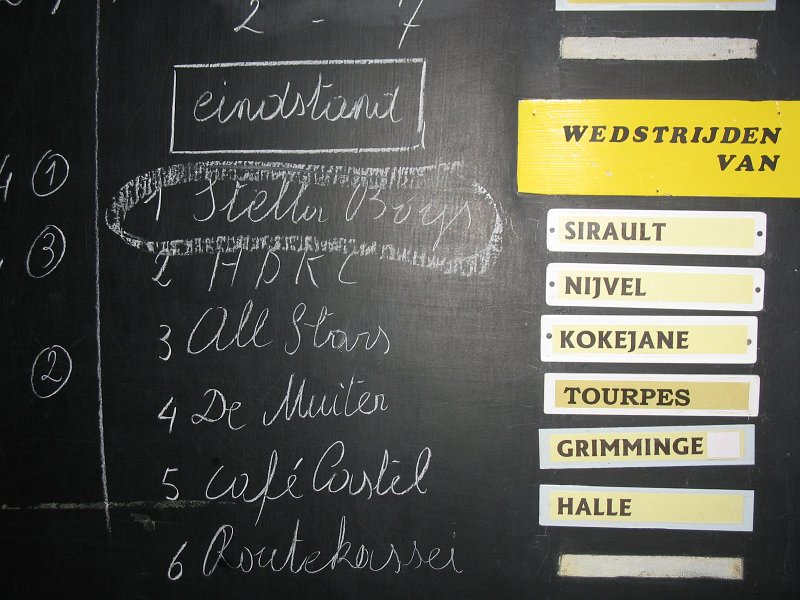 2 - 7
eindstand
4 1
1 Stella Boys
3
2 HDKC
3 All Stars
2
4 De Muiter
5 Café Castel
6 Routekassei
WEDSTRIJDEN
VAN
SIRAULT
NIJVEL
KOKEJANE
TOURPES
GRIMMINGE
HALLE